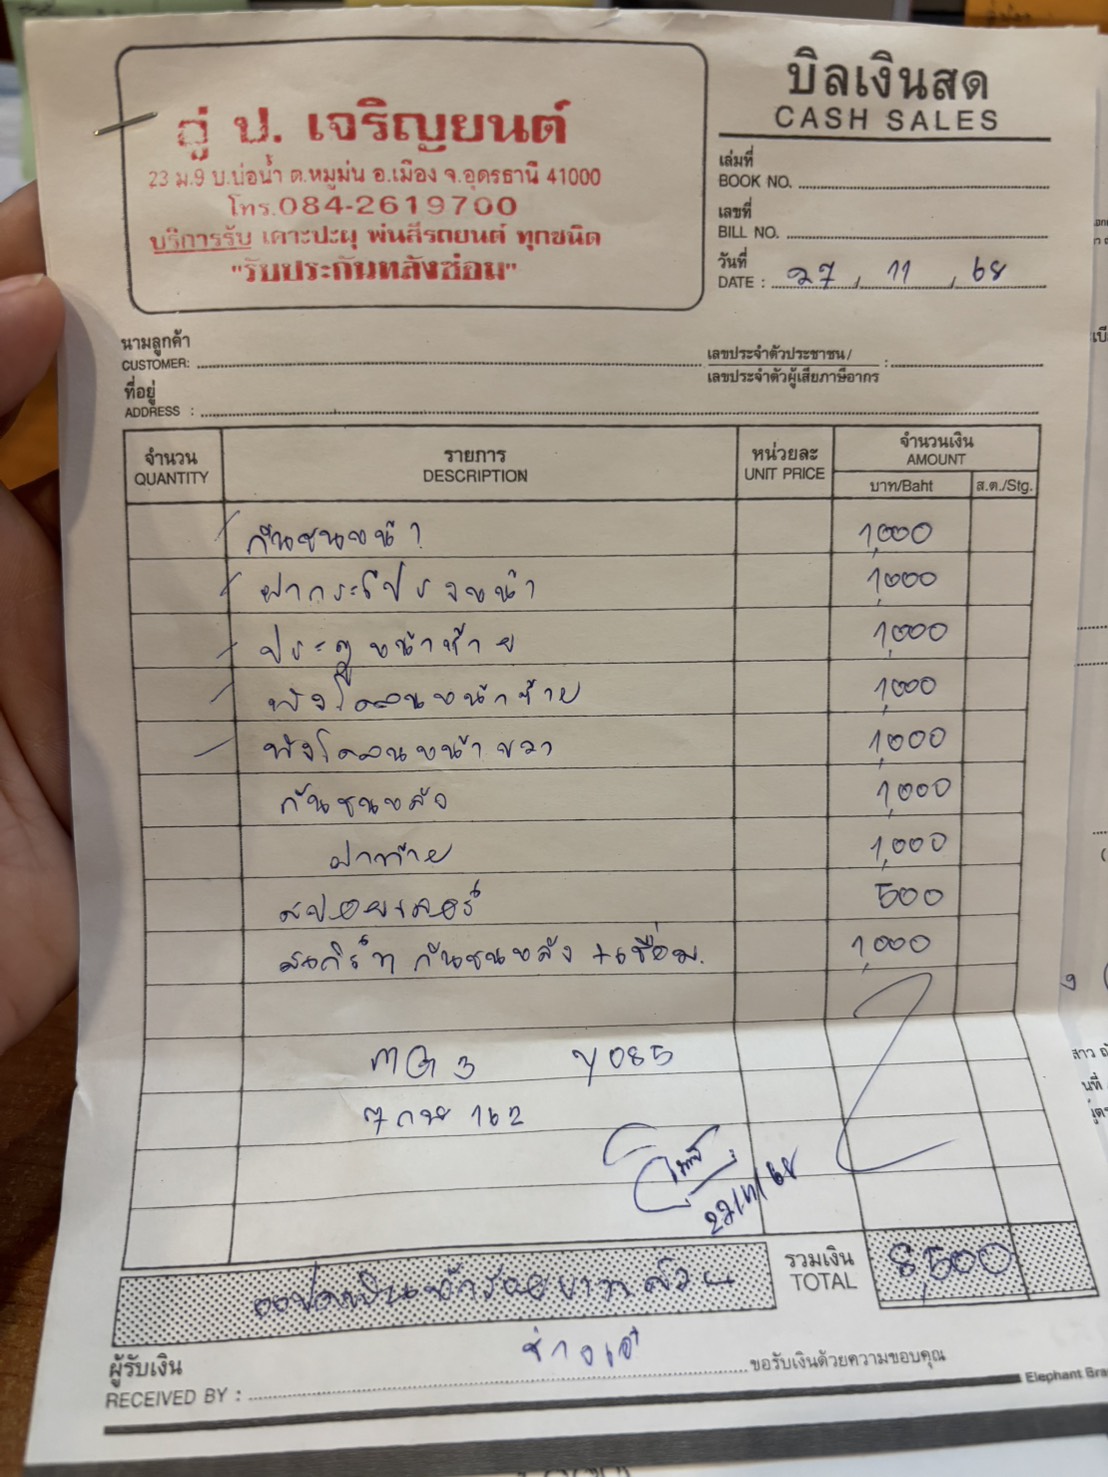 บิลเงินสด
CASH SALES
อู่ ป. เจริญยนต์
23 ม.9 บ.บ่อน้ำ ต.หมูม่น อ.เมือง จ.อุดรธานี 41000
โทร.084-2619700
บริการรับ เคาะปะผุ พ่นสีรถยนต์ ทุกชนิด
"รับประกันหลังซ่อม"
เล่มที่
BOOK NO.
เลขที่
BILL NO.
วันที่
DATE : 27 / 11 / 68
นามลูกค้า
CUSTOMER:
เลขประจำตัวประชาชน/
เลขประจำตัวผู้เสียภาษีอากร :
ที่อยู่
ADDRESS :
จำนวน รายการ หน่วยละ จำนวนเงิน
QUANTITY DESCRIPTION UNIT PRICE AMOUNT
บาท/Baht ส.ต./Stg.
กันชนหน้า 1,000
ฝากระโปรงหน้า 1,000
ประตูหน้าซ้าย 1,000
บังโคลนหน้าซ้าย 1,000
บังโคลนหน้าขวา 1,000
กันชนหลัง 1,000
ฝาท้าย 1,000
สปอยเลอร์ 500
สเกิร์ท กันชนหลัง +เชื่อม. 1,000
MG 3 Y085
7กษ 162
27/11/68
แปดพันห้าร้อยบาทถ้วน
รวมเงิน
TOTAL 8,500
ช่างเอ๋
ผู้รับเงิน
RECEIVED BY : ขอรับเงินด้วยความขอบคุณ
Elephant Bra